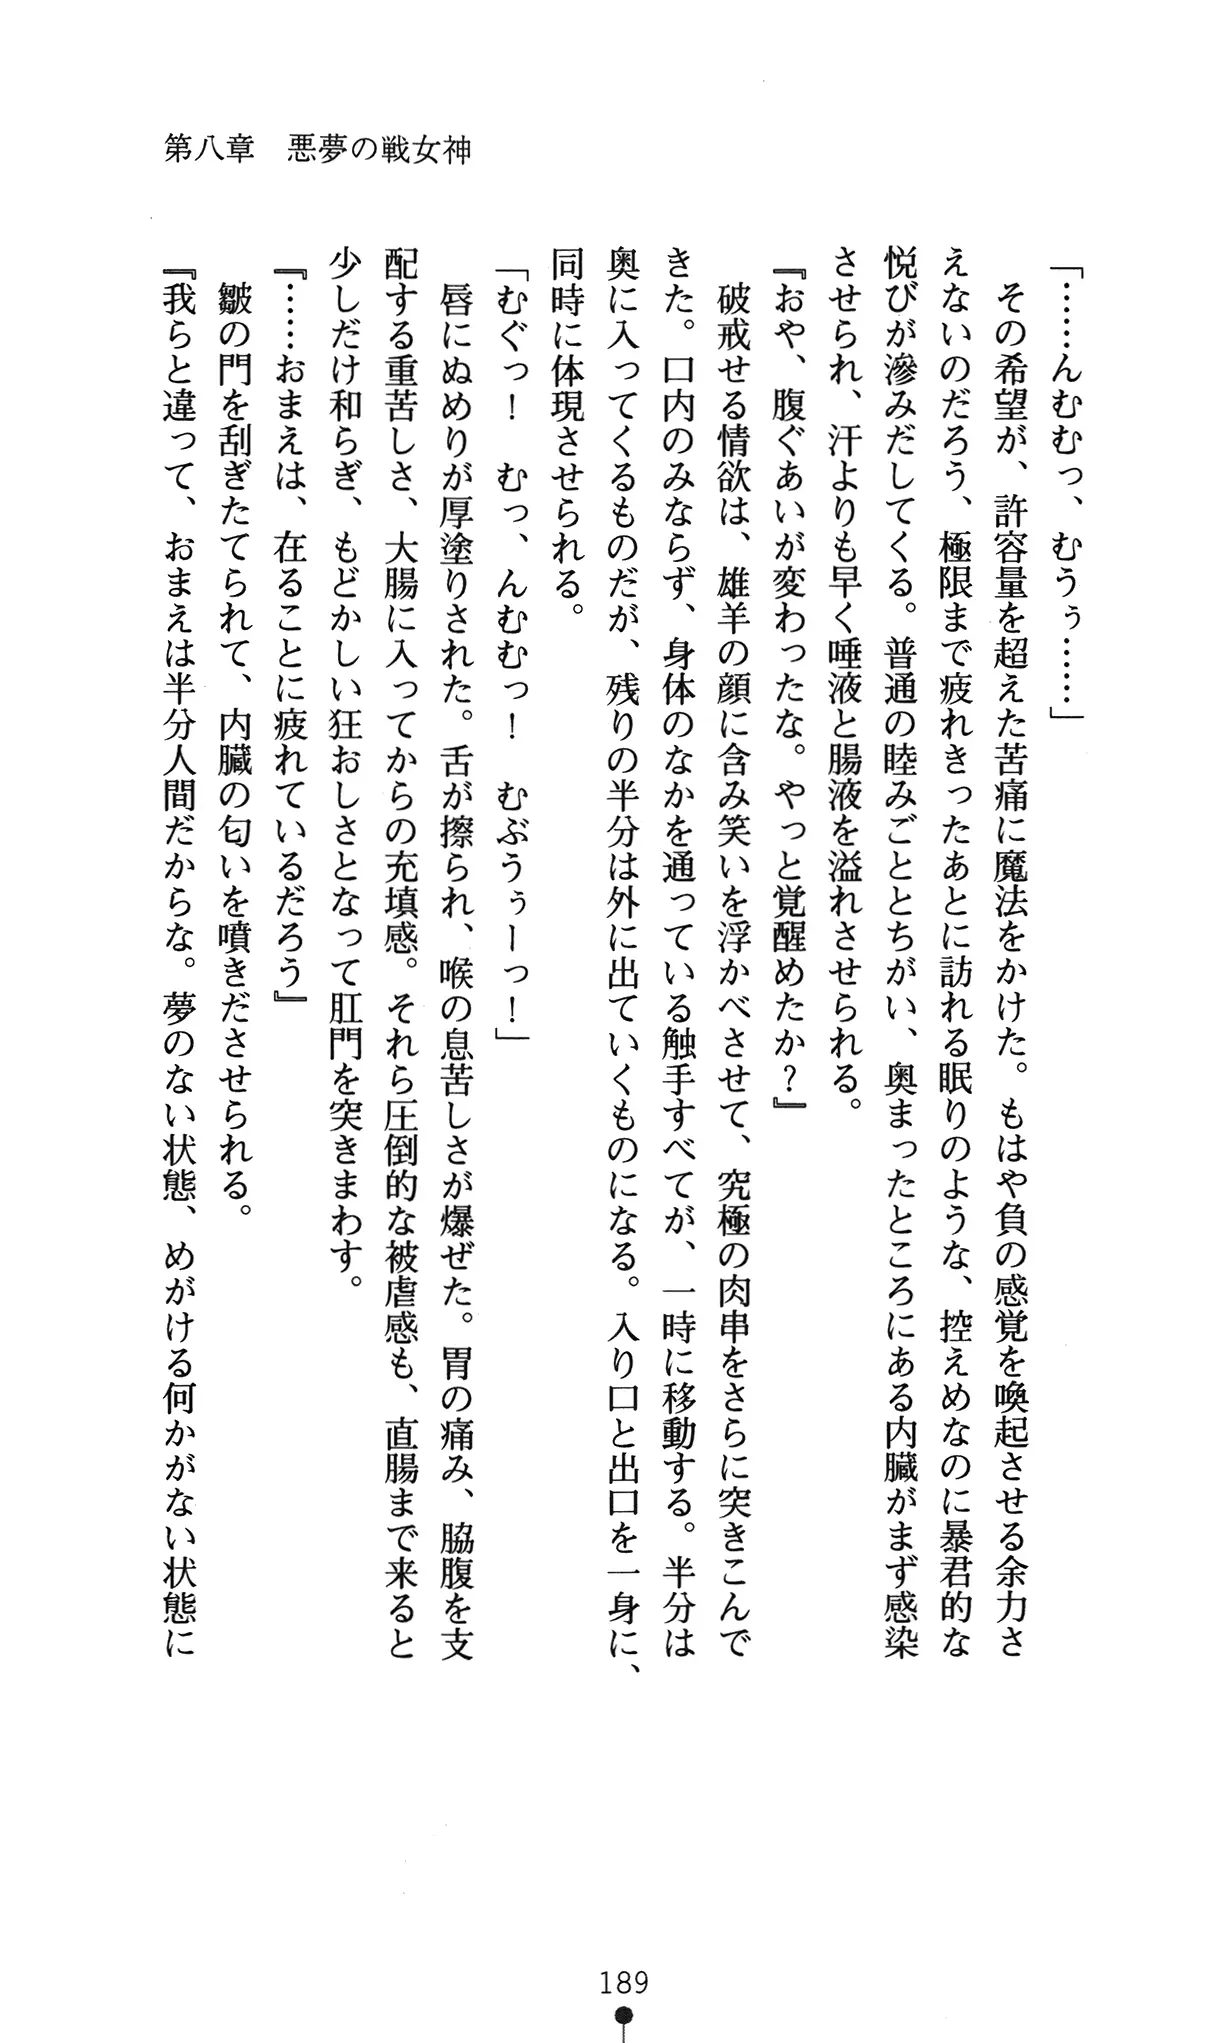 第八章　悪夢の戦女神
「……んむむっ、むうぅ……」
　その希望が、許容量を超えた苦痛に魔法をかけた。もはや負の感覚を喚起させる余力さ
えないのだろう、極限まで疲れきったあとに訪れる眠りのような、控えめなのに暴君的な
悦びが滲みだしてくる。普通の睦みごととちがい、奥まったところにある内臓がまず感染
させられ、汗よりも早く唾液と腸液を溢れさせられる。
『おや、腹ぐあいが変わったな。やっと覚醒めたか？』
　破戒せる情欲は、雄羊の顔に含み笑いを浮かべさせて、究極の肉串をさらに突きこんで
きた。口内のみならず、身体のなかを通っている触手すべてが、一時に移動する。半分は
奥に入ってくるものだが、残りの半分は外に出ていくものになる。入り口と出口を一身に、
同時に体現させられる。
「むぐっ！　むっ、んむむっ！　むぶうぅーっ！」
　唇にぬめりが厚塗りされた。舌が擦られ、喉の息苦しさが爆ぜた。胃の痛み、脇腹を支
配する重苦しさ、大腸に入ってからの充填感。それら圧倒的な被虐感も、直腸まで来ると
少しだけ和らぎ、もどかしい狂おしさとなって肛門を突きまわす。
『……おまえは、在ることに疲れているだろう』
　皺の門を刮ぎたてられて、内臓の匂いを噴きださせられる。
『我らと違って、おまえは半分人間だからな。夢のない状態、めがける何かがない状態に
189